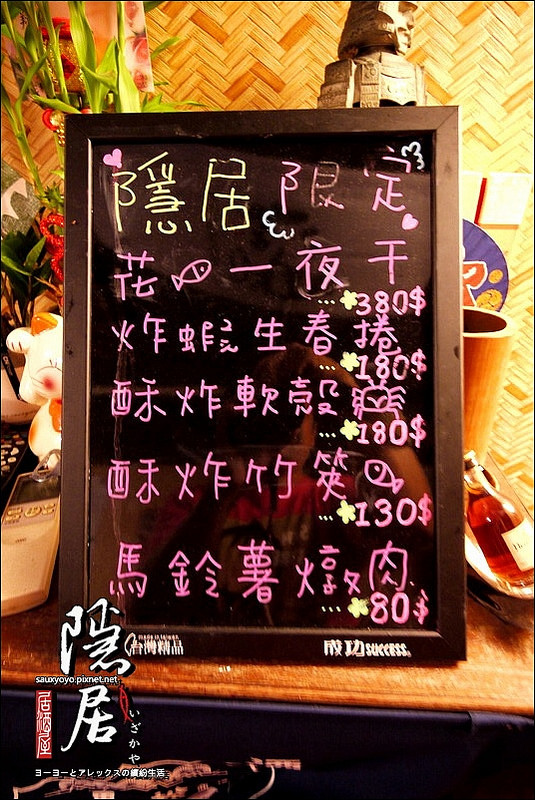 隱居限定
花一夜干
...380$
炸蝦生春捲
...180$
酥炸軟殼
...180$
酥炸竹筴
...130$
馬鈴薯燉肉
...80$
MADE IN TAIWAN
台灣精品
成功 SUCCESS.
隱居
sauxyoyo.pixnet.net
居酒屋
いざかや
ヨーヨーとアレックスの繽紛生活